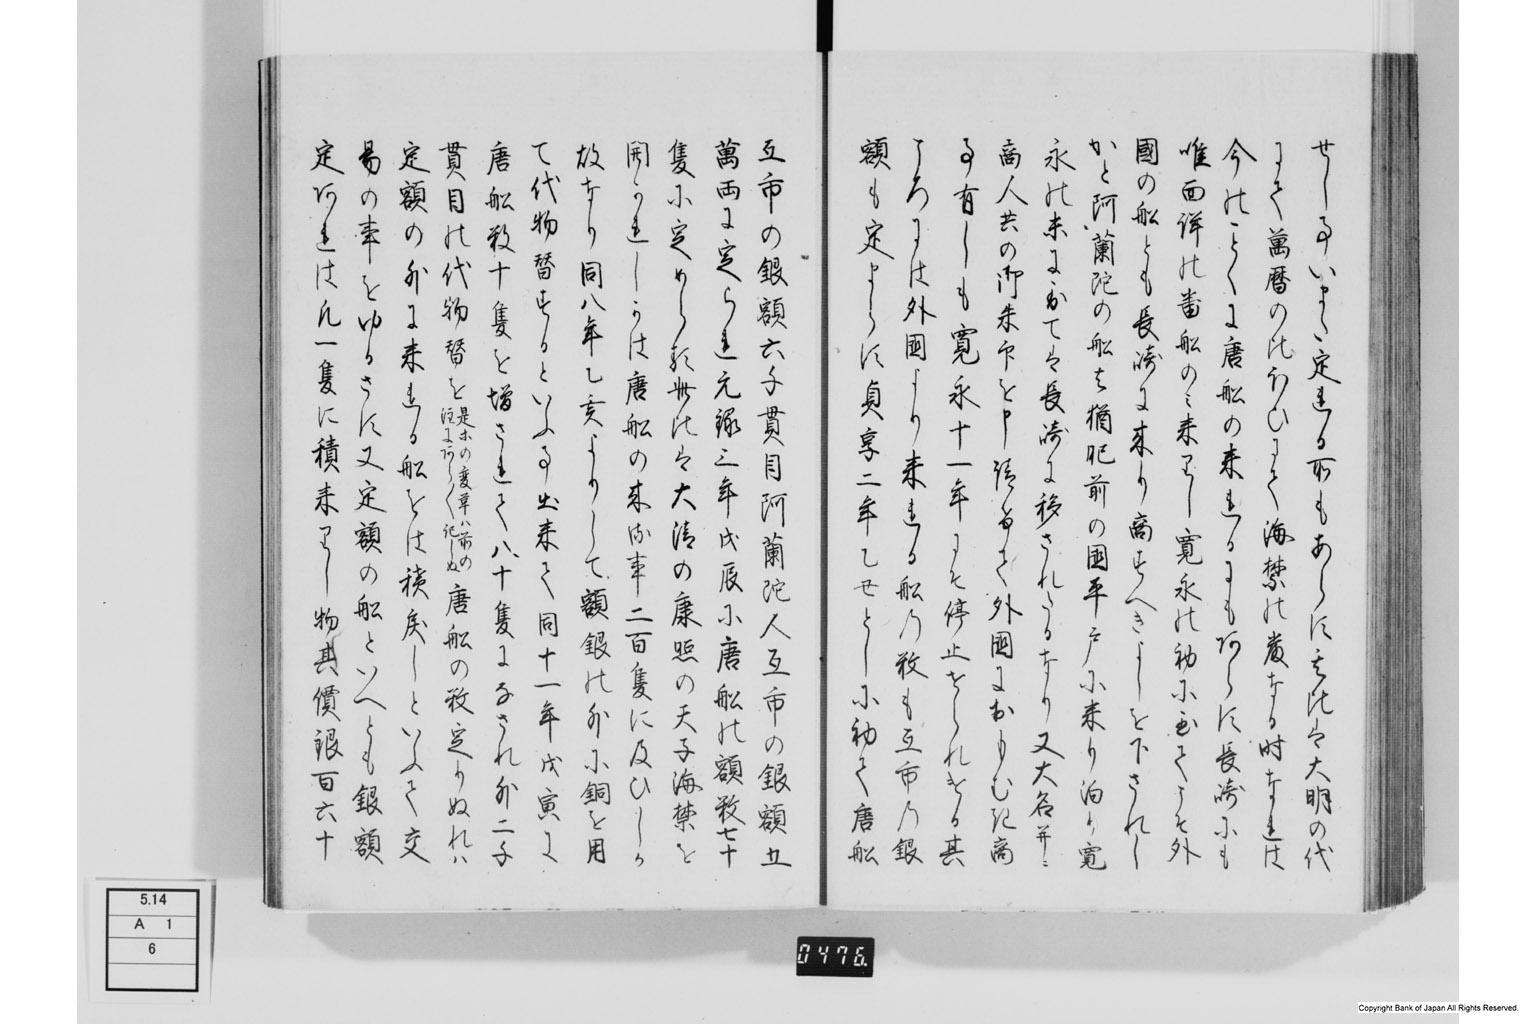 せし事いまた定れる所もあらす其比は大明の代
にて萬暦の比ほひにて海禁の嚴なる時なれは
今のことくに唐船の来れるにもあらす長崎にも
唯西洋の番船のミ来りし寛永の初に至てこそ外
國の船とも長崎に来り商すへきよしを下されし
かと阿蘭陀の船は猶肥前の國平戸に来り泊り寛
永の末に至ては長崎に移されたるなり又大名并ニ
商人共の御朱印を申請けて外國におもむき商
事有しも寛永十一年にそ停止せられける其
ころには外國より来れる船の数も互市の銀
額も定まらす貞享二年乙丑としに初て唐船
互市の銀額六千貫目阿蘭陀人互市の銀額五
萬両に定らる元録三年戊辰に唐船の額数七十
隻に定めらる此比は大清の康熙の天子海禁を
開かれしかは唐船の来る事二百隻に及ひしか
故なり同八年乙亥よりして額銀の外に銅を用
て代物替するといふ事出来て同十一年戊寅に
唐船数十隻を増されて八十隻になされ外二千
貫目の代物替を
是ホの変革ハ前の
注にくはしく記しぬ
唐船の数定りぬれハ
定額の外に来れる船をは積戻しといふて交
易の事をゆるさす又定額の船といへとも銀額
定れは凡一隻に積来りし物其價銀百六十
5.14
A 1
6
0476
Copyright Bank of Japan All Rights Reserved.